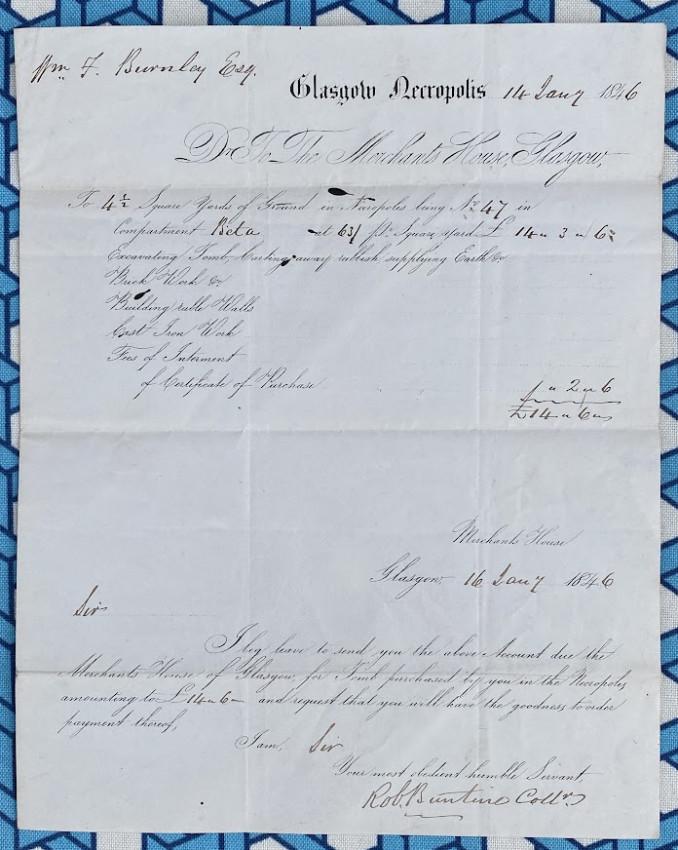 Wm F. Burnley Esq.
Glasgow Necropolis 14 Jany 1846
Dr. To The Merchants House, Glasgow,
To 4½ Square Yards of Ground in Necropoles being No 47 in
Compartment Beta at 63/ pr. Square yard £ 14 " 3 " 6
Excavating Tomb, Carting away rubbish, supplying Earth &c
Brick Work &c
Building ruble Walls
Cast Iron Work
Fees of Interment
of Certificate of Purchase
" 2 " 6
£ 14 " 6 "
Merchants House
Glasgow, 16 Jany 1846
Sir
I beg leave to send you the above Account due the
Merchants House of Glasgow, for Tomb purchased by you in the Necropoles
amounting to £ 14 " 6 " and request that you will have the goodness to order
payment thereof,
I am, Sir
Your most obedient humble Servant,
Rob. Buntine Collr.